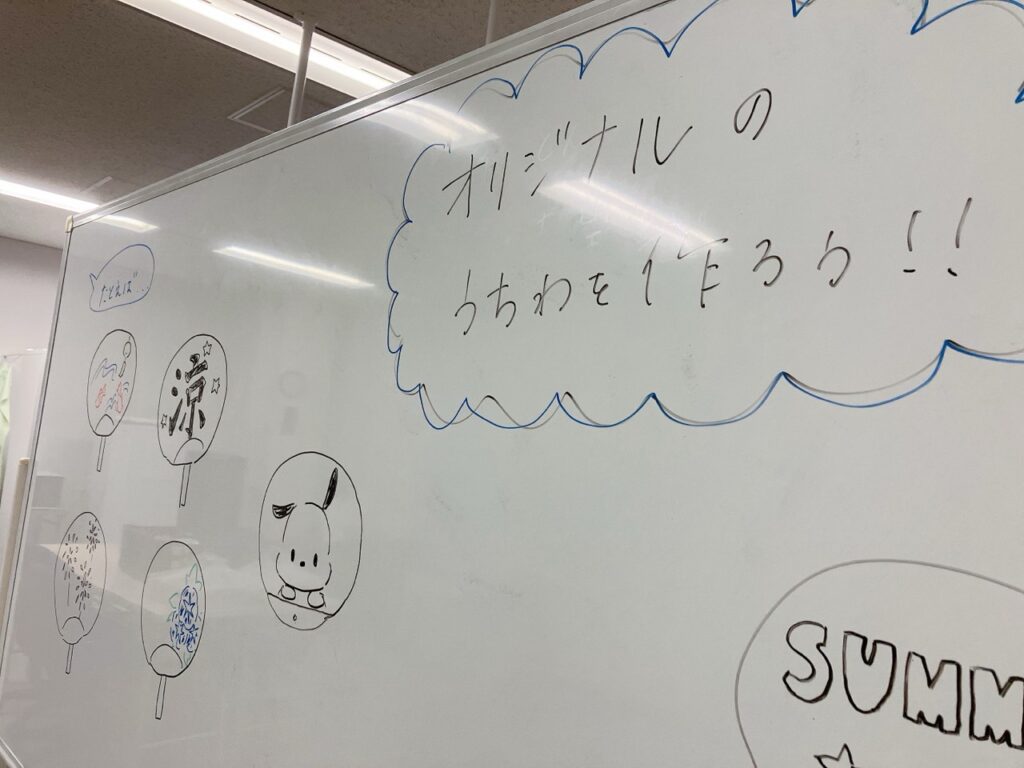 オリジナルの
うちわを作ろう!!
たとえば..
涼
SUMM